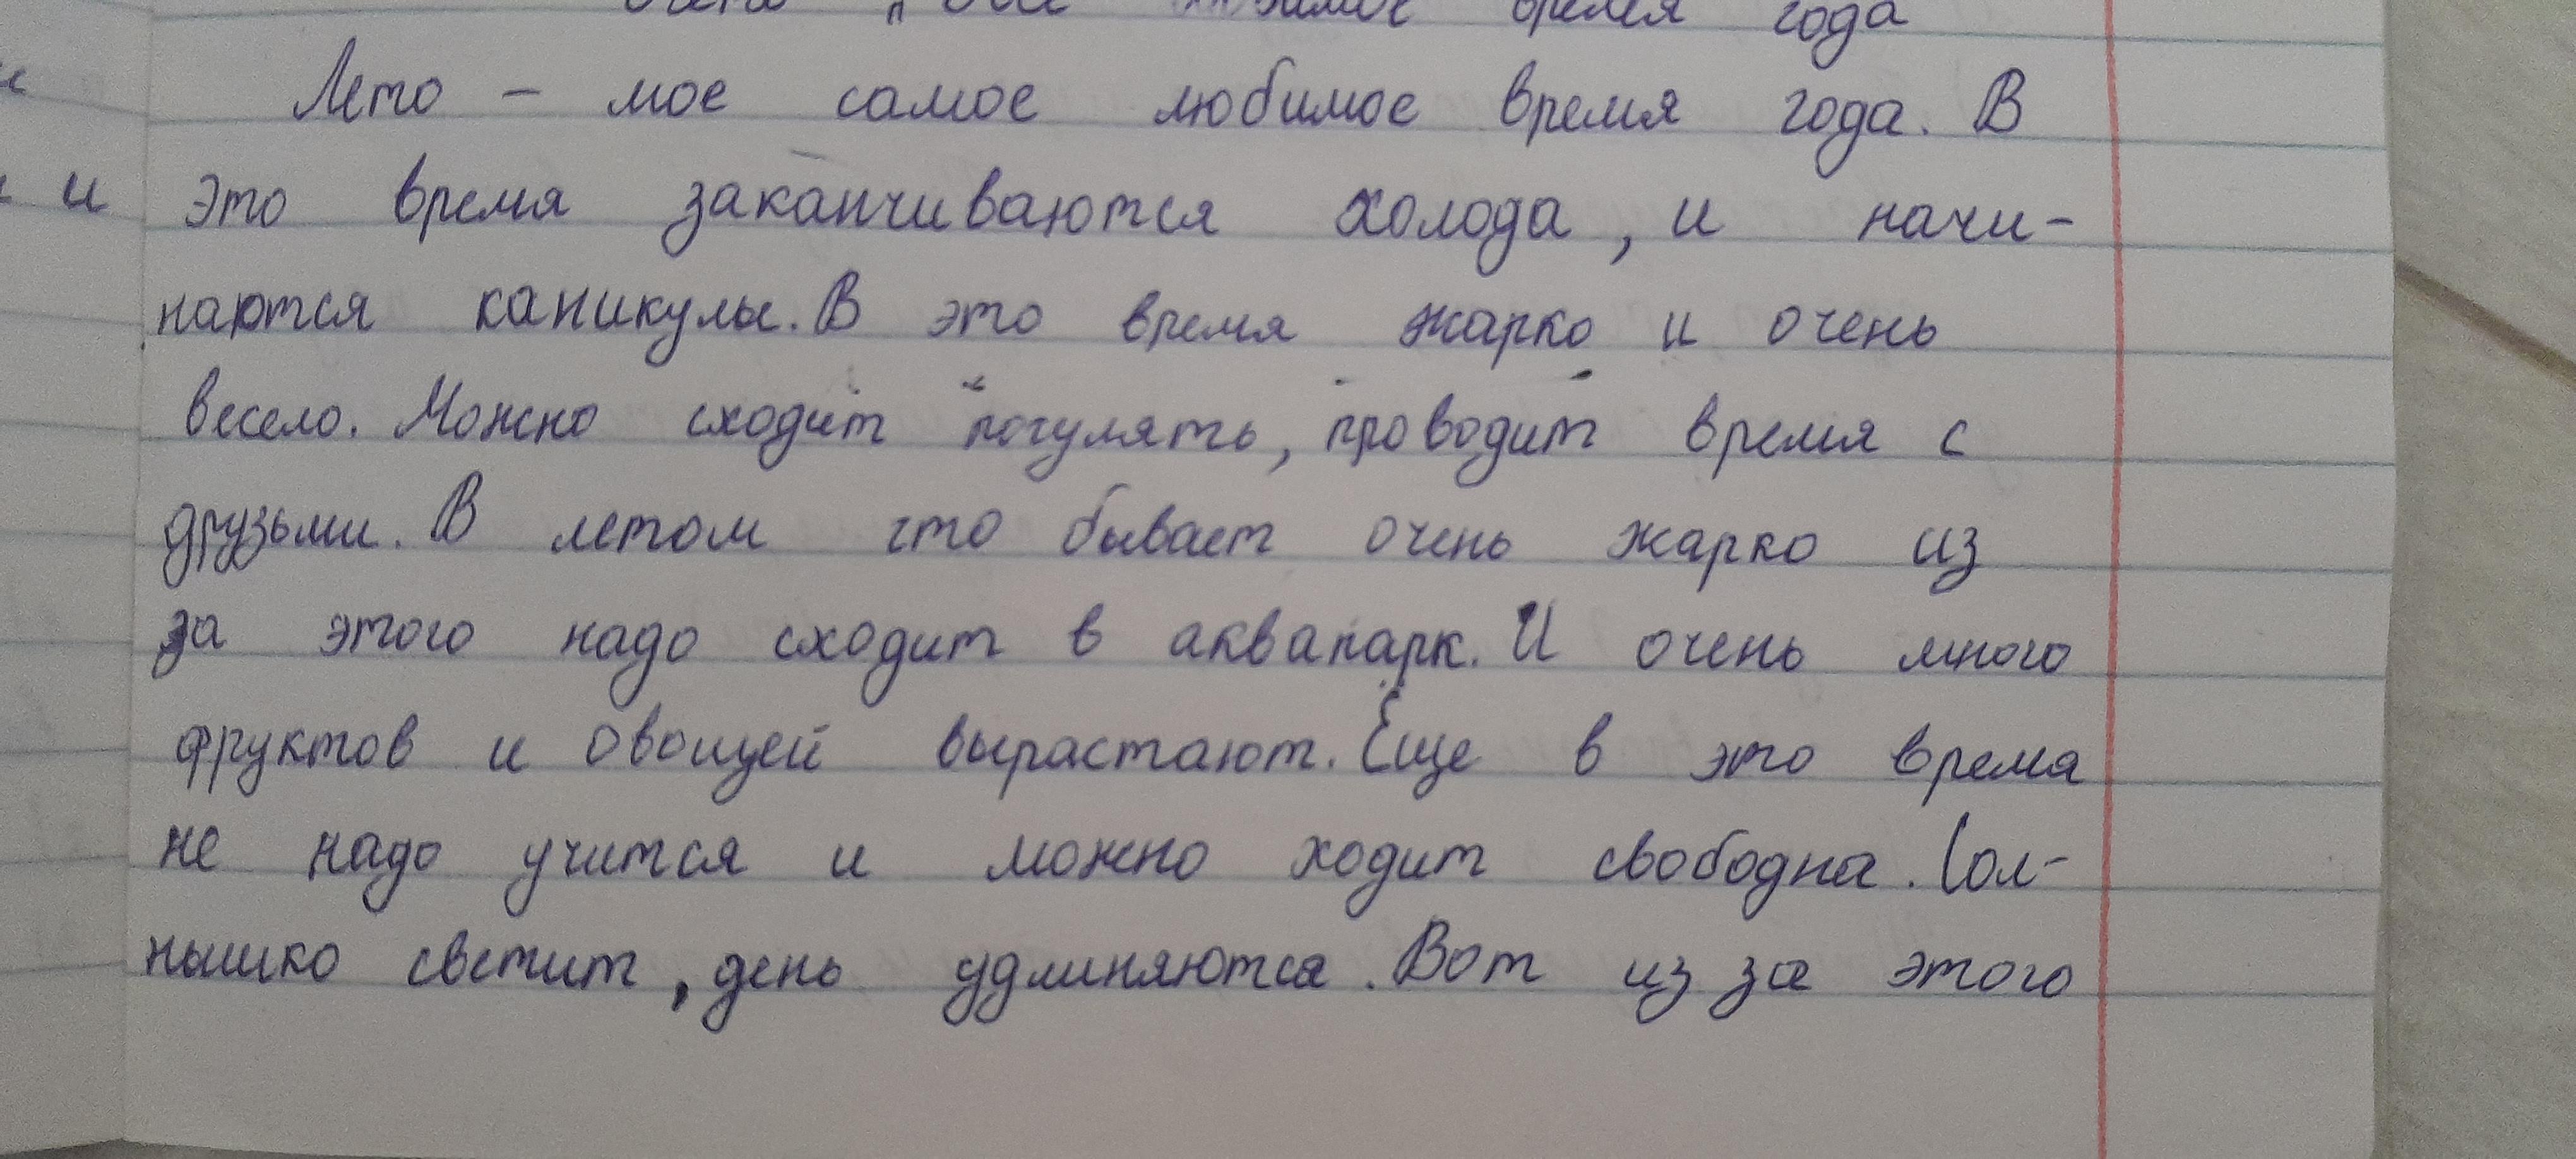 время года
Лето – мое самое любимое время года. В
это время заканчиваются холода, и начи-
наются каникулы. В это время жарко и очень
весело. Можно сходит погулять, проводит время с
друзьми. В летом что бывает очень жарко из
за этого надо сходит в аквапарк. И очень много
фруктов и овощей вырастают. Еще в это время
не надо учится и можно ходит свободна. Сол-
нышко светит, день удлиняются. Вот из за этого
и